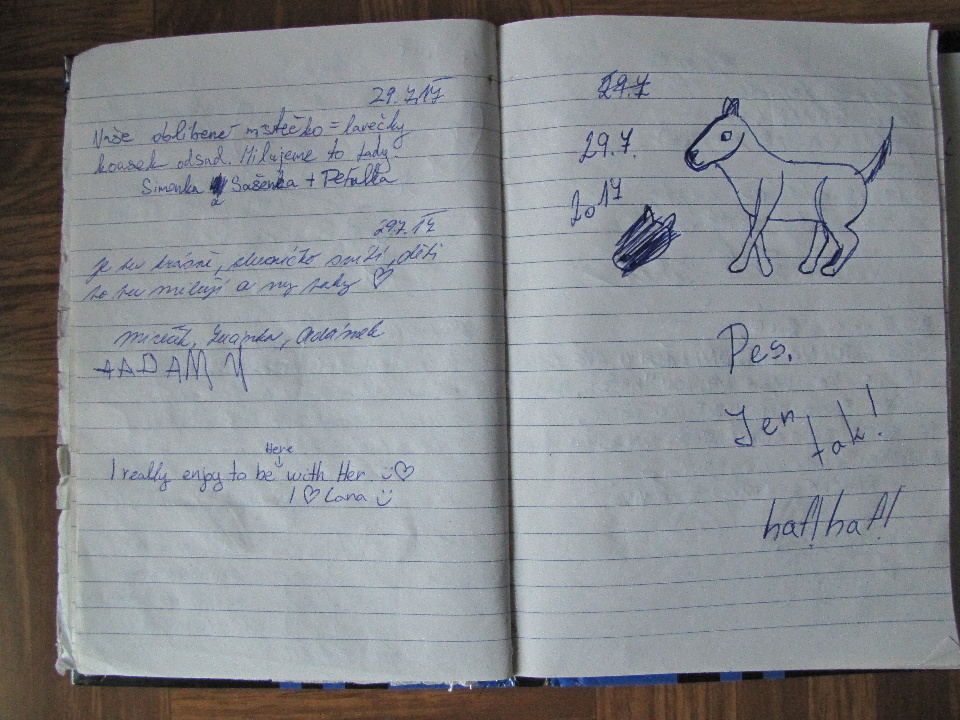 29.7.17
Naše oblíbené místečko = lavečky
kousek odsad. Milujeme to tady.
Simonka a Sašenka + Peťulka
29.7.17
Je tu krásně, sluníčko svítí, děti
to tu milují a my taky ♡
Mireček, Adámek
AADAM
Here
I really enjoy to be ↓ with Her. ü♡
I ♡ Lana ü
29.7
29.7.
2017
Pes.
Jen
tak!
haf! haf!